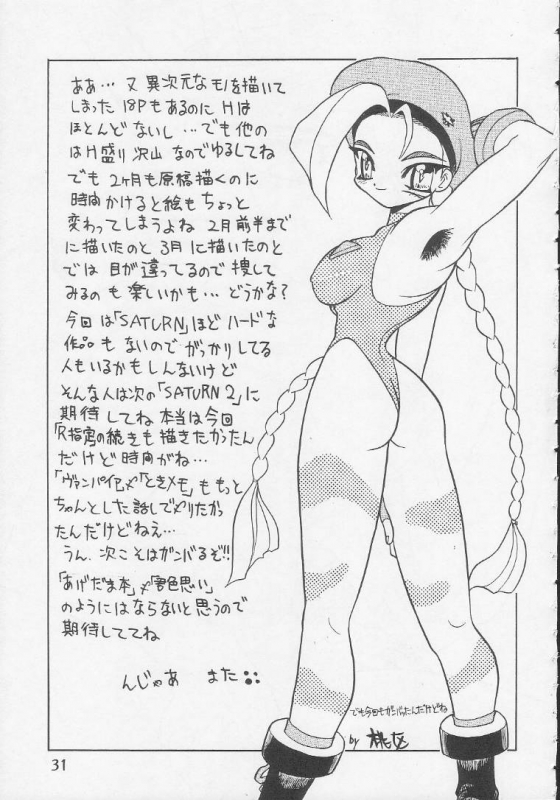 ああ… 又 異次元なモノを描いて
しまった 18Pもあるのに Hは
ほとんどないし …でも他の
はH盛り沢山 なのでゆるしてね
でも 2ヶ月も原稿描くのに
時間かけると絵もちょっと
変わってしまうよね 2月前半まで
に描いたのと 3月に描いたのと
では 目が違ってるので 捜して
みるのも楽しいかも… どうかな?
今回は「SATURN」ほどハードな
作品もないので がっかりしてる
人もいるかもしんないけど
そんな人は次の「SATURN 2」に
期待しててね 本当は今回
「R指定」の続きも描きたかったん
だけど時間がね…
「ヴァンパイア」や「ときメモ」ももっと
ちゃんとした話しでやりたかっ
たんだけどねえ…
うん、次こそはガンバるぞ!!
「あげだま本」や「 色思い」
のようにはならないと思うので
期待しててね
んじゃあ また
でも今回もガンバったんだけどね
by
31